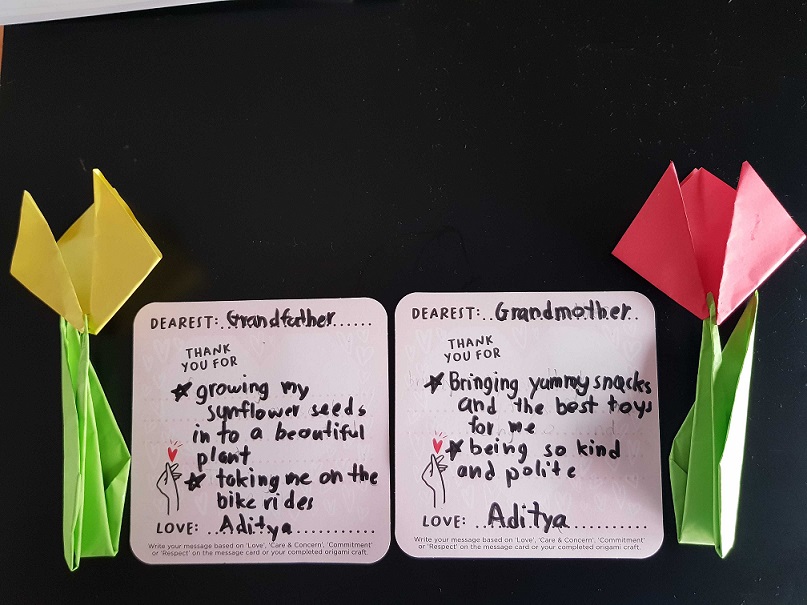 DEAREST: Grandfather
THANK
YOU FOR
growing my
sunflower seeds
in to a beautiful
plant
taking me on the
bike rides
LOVE: Aditya
Write your message based on 'Love', 'Care & Concern', 'Commitment'
or 'Respect' on the message card or your completed origami craft.
DEAREST: Grandmother
THANK
YOU FOR
Bringing yummy snacks
and the best toys
for me
being so kind
and polite
LOVE: Aditya
Write your message based on 'Love', 'Care & Concern', 'Commitment'
or 'Respect' on the message card or your completed origami craft.